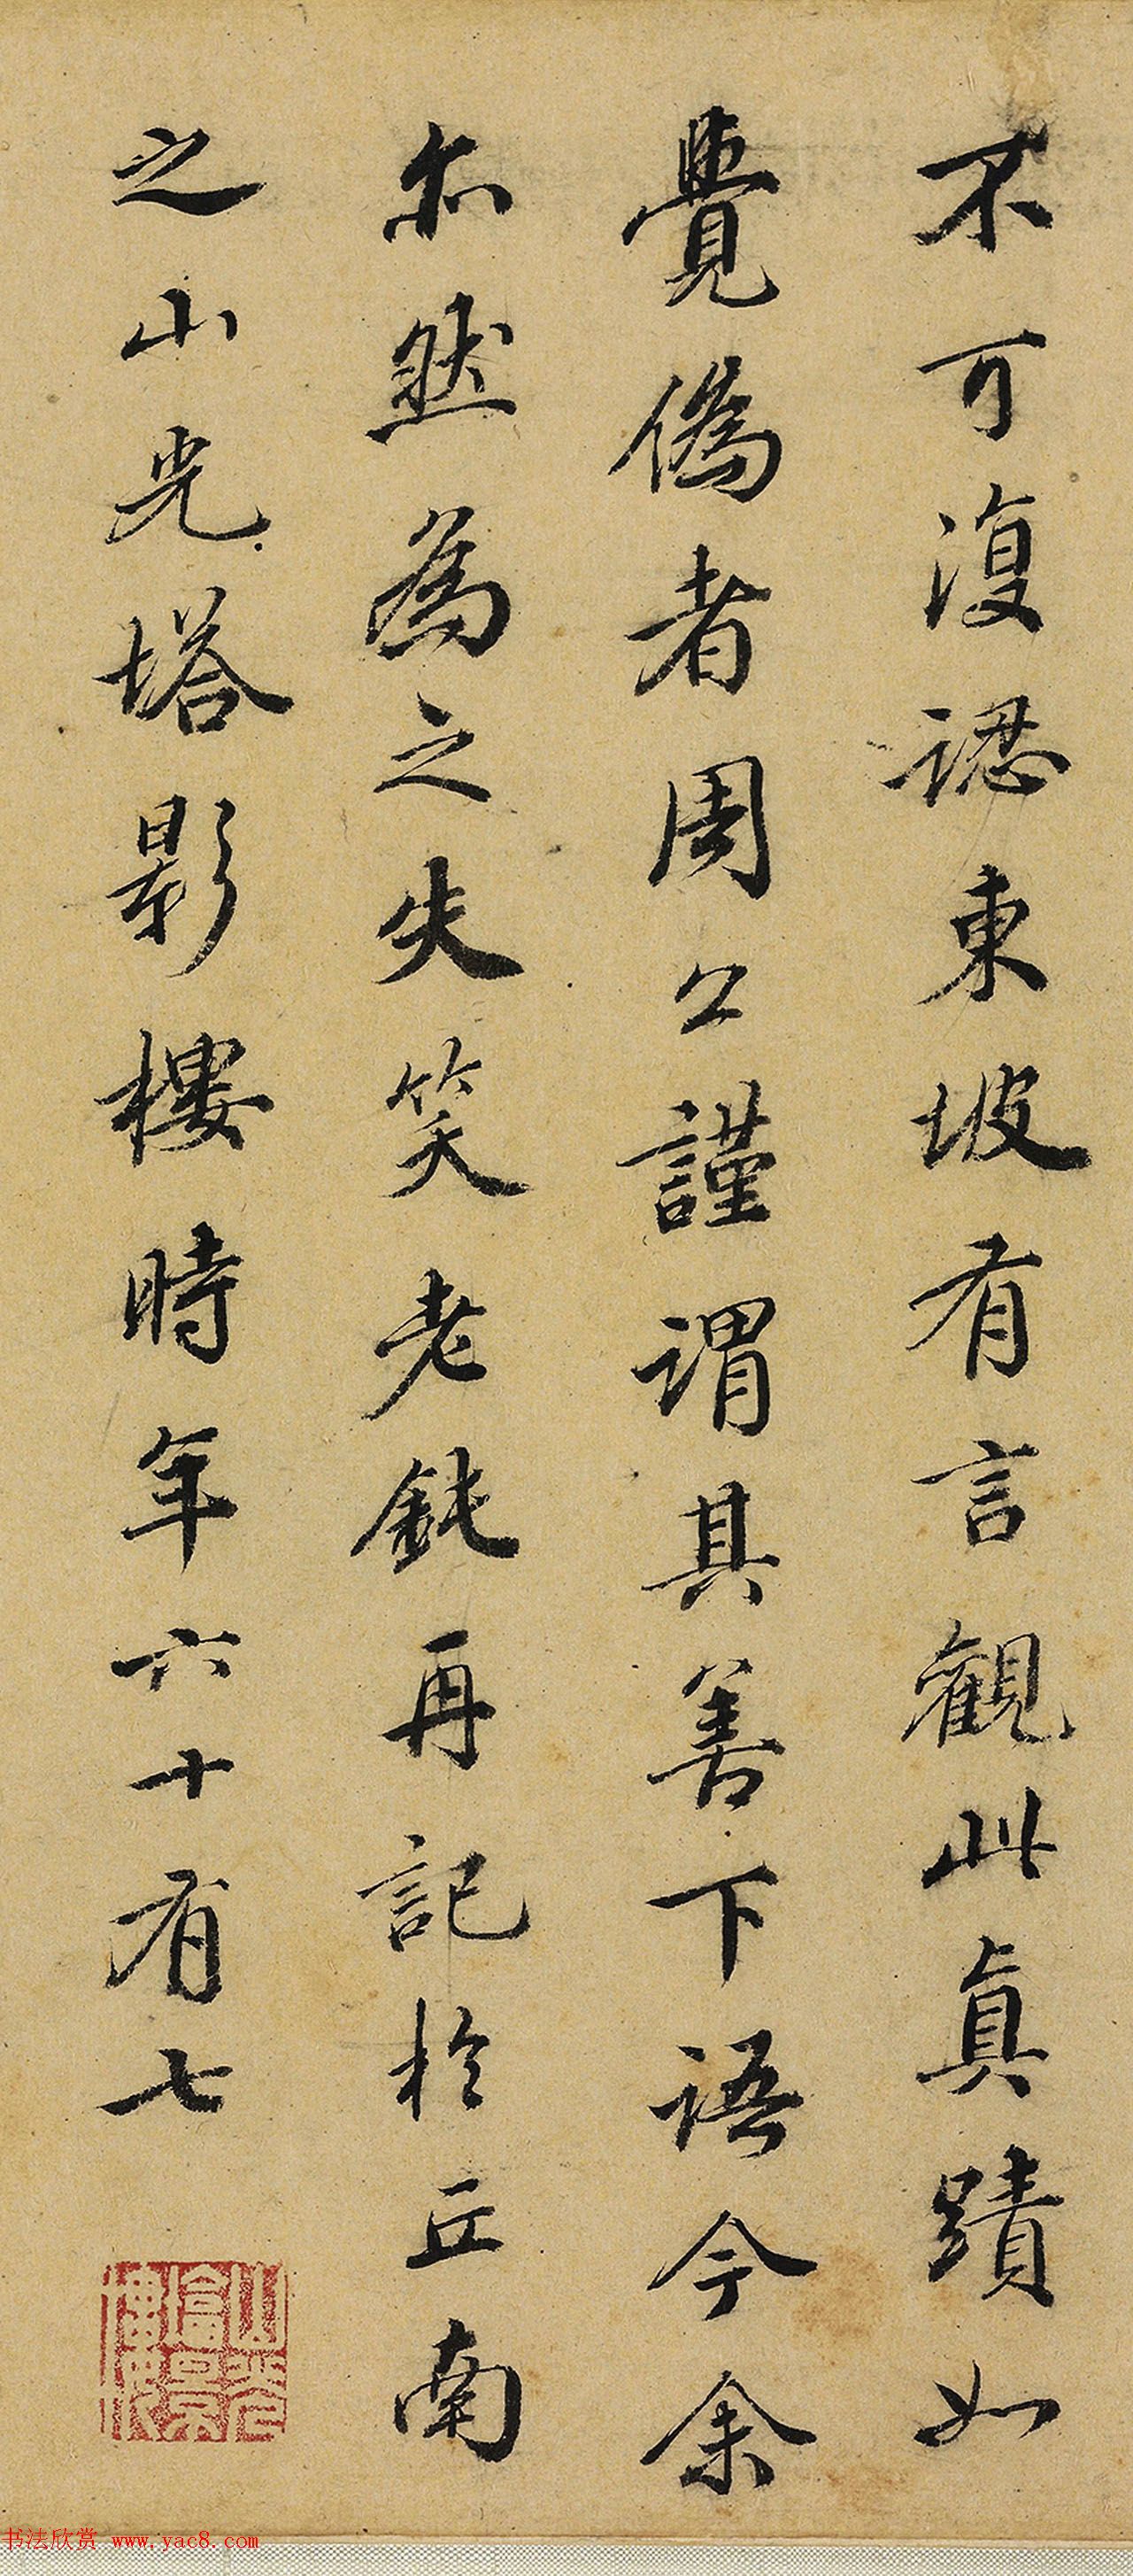 不可復認東坡有言觀此真蹟如
覺偽者周公謹謂其善下語今余
亦然為之失笑老鈍再記於丘南
之山光塔影樓時年六十有七
书法欣赏 www.yac8.com